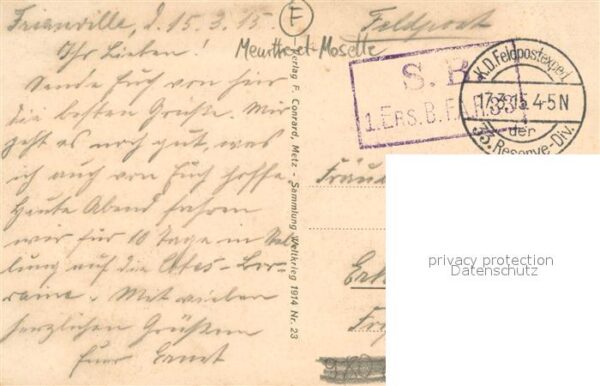 Frianville, d. 15.3.15.
Ihr Lieben!
Sende Euch von hier
die besten Grüße. Mir
geht es noch gut, was
ich auch von Euch hoffe.
Heute Abend fahren
wir für 10 Tage in Stel-
lung auf die Côtes-Lor-
raine. Mit vielen
herzlichen Grüßen
Euer Ernst
F
Meurthe-et-Moselle
Verlag F. Conrard, Metz - Sammlung Weltkrieg 1914 Nr. 23
Feldpost
S. B.
1. ERS. B. F. A. R. 33
K.D. Feldpostexped.
17.3.15. 4-5N
der
33. Reserve-Div.
privacy protection
Datenschutz